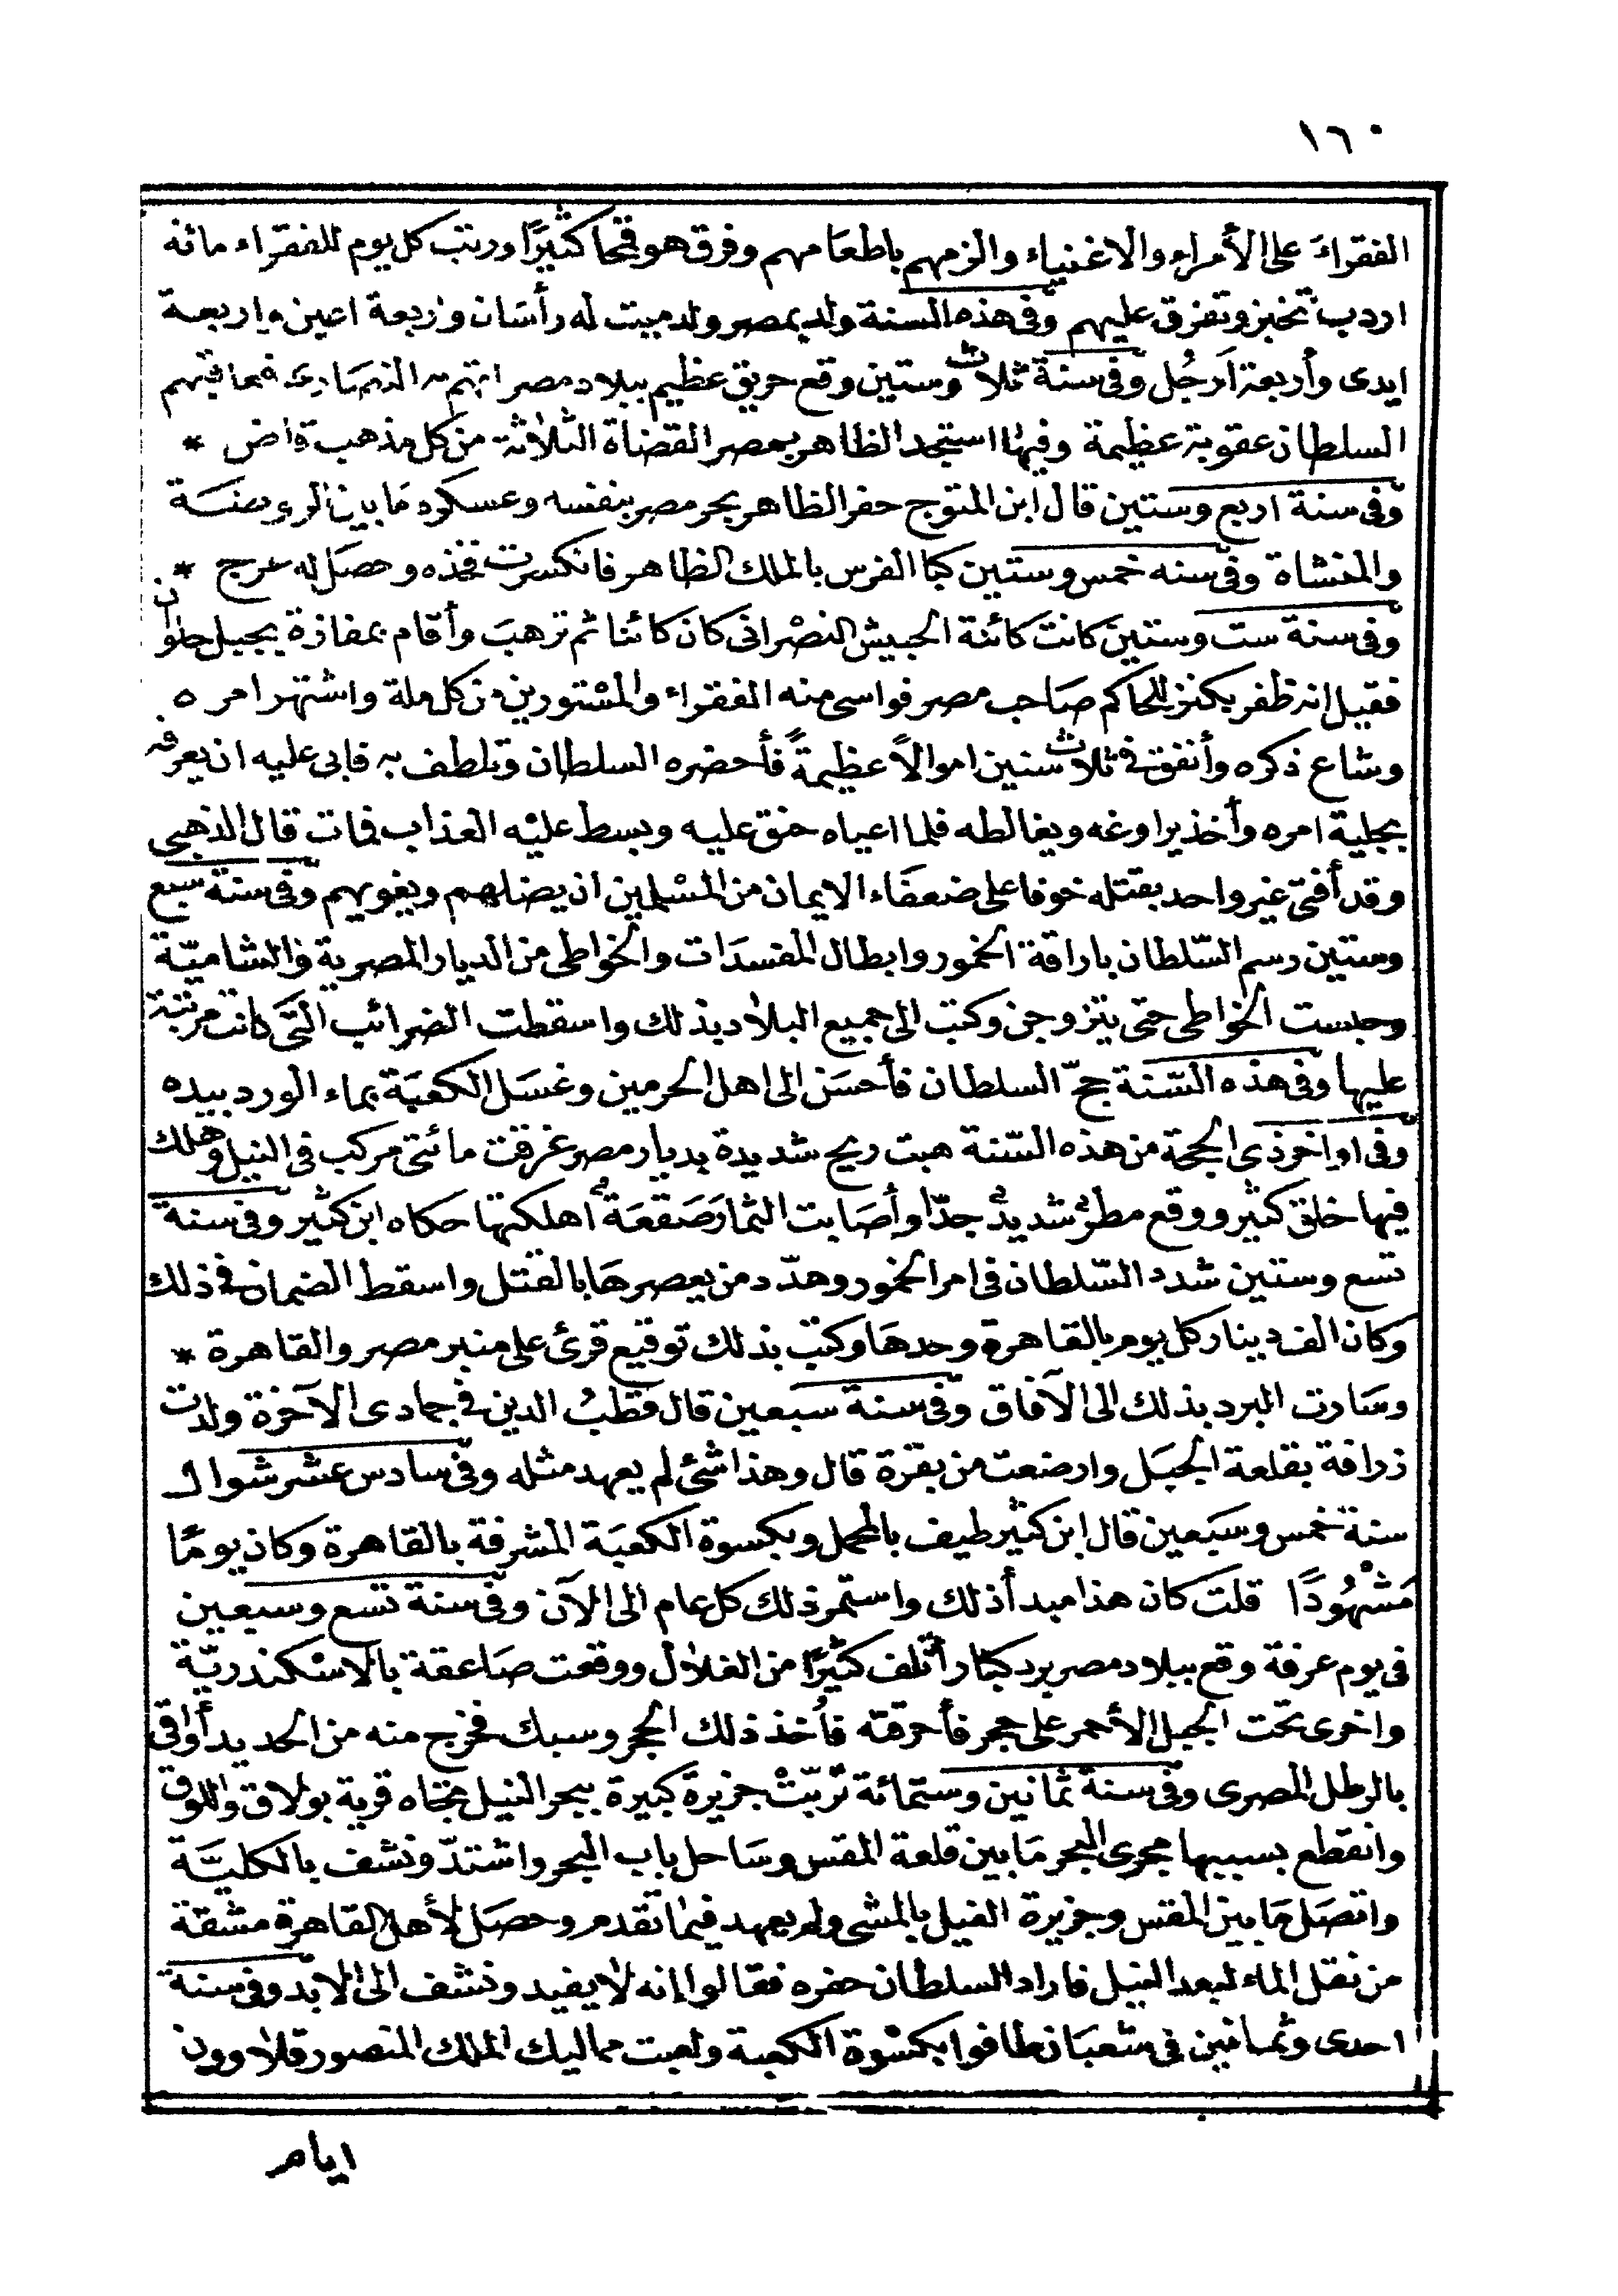 ١٦٠
الفقراءَ على الأمراء والاغنياء والزمهم باطعامهم وفرق هو قمحا كثيرًا ورتب كل يوم للفقراء مائة
اردب تخبز وتفرق عليهم وفى هذه السنة ولد بمصر ولد ميت له رأسان واربعة اعين واربعة
ايدى وأربعة اَرجُل وفى سنة ثلاث وستين وقع حريق عظيم ببلاد مصر اتهم به النصارى فعاقبهم
السلطان عقوبة عظيمة وفيها استجد الظاهر بمصر القضاة الثلاثة من كل مذهب قاض *
وفى سنة اربع وستين قال ابن المتوج حفر الظاهر بحر مصر بنفسه وعسكره ما بين
والمنشاة وفى سنه خمس وستين كبا الفرس بالملك الظاهر فانكسرت فخذه وحصل له عرج *
وفى سنة ست وستين كانت كائنة الحبيش النصرانى كان كاتبا ثم ترهبَ وأقام بمغازة بجبل حلوان
فقيل انه ظفر بكنز للحاكم صاحب مصر فواسى منه الفقراء والمسْتورين من كل ملة واشتهر امره
وشاع ذكره وأنفق فى ثلاث سنين اموالاً عظيمةً فأحضره السلطان وتلطف به فابى عليه ان يعرفه
بجلية امره وأخذ يراوغه ويغالطه فلما اعياه حنق عليه وبسط عليْه العذاب فمات قال الذهبى
وقد أفتى غير واحد بقتله خوفا على ضعفاء الايمان من المسْلمين ان يضلهم ويغويهم وفى سنة سبع
وستين رسم السّلطان باراقة الخمور وابطال المفسدَات والخواطى من الديار المصرية والشاميّة
وحبست الخواطى حتى يتزوجن وكتب الى جميع البلاد بذلك واسقطت الضرائب التى كانت مرتبة
عليها وفى هذه السّنة حجّ السلطان فأحسَن الى اهل الحرمين وغسَل الكعبَة بماء الورد بيده
وفى اواخر ذى الحجة من هذه السّنة هبت ريح شديدة بديار مصر غرقت مائتى مركب فى النيل وهلك
فيها خلق كثير ووقع مطرٌ شديدٌ جدّا وأصَابت الثمارَ صَقعَةٌ اهلكتها حكاه ابن كثير وفى سنة
تسع وستين شدد السّلطان فى امر الخمور وهدّد من يعصرها بالقتل واسقط الضمان فى ذلك
وكان الف دينار كل يوم بالقاهرة وحدها وكتب بذلك توقيع قرئ على منبر مصر والقاهرة *
وسَارت البرد بذلك الى الآفاق وفى سنة سبعين قال قطبُ الدين فى جمادى الآخرة ولدت
زرافة بقلعة الجبَل وارضعت من بقرة قال وهذا شئ لم يعهد مثله وفى سادس عشر شوال
سنة خمس وسبَعين قال ابن كثير طيف بالمحمل وبكسوة الكعبَة المشرفة بالقاهرة وكان يومًا
مَشْهُودًا قلت كان هذا مبدأ ذلك واستمر ذلك كل عام الى الآن وفى سنة تسع وسبعين
فى يوم عرفة وقع ببلاد مصر برد كبار أتلف كثيرًا من الغلال ووقعت صَاعقة بالاسْكندريّة
واخرى تحت الجبل الأحمر على حجر فأحرقته فأُخذ ذلك الحجر وسبك فخرج منه من الحديد أواقى
بالرطل المصرى وفى سنة ثمانين وستمائة تربّتْ جزيرةٌ كبيرة ببحر النيل تجاه قرية بولاق واللوق
وانقطع بسببها مجرى البحر مَا بين قلعة المقس وسَاحل باب البحر واشتدّ ونشف بالكليَّة
واتصَل مَا بين المقس وجزيرة الفيل بالمشى ولم يعهد فيما تقدم وحصَل لأهل القاهرة مشقة
من نقل الماء لبعد النيل فاراد السلطان حفره فقالوا إنه لا يفيد ونشف الى الابد وفى سنة
احدى وثمانين فى شعبَان طافوا بكسْوة الكعبة ولعبت مماليك الملك المنصور قلاوون
ايام